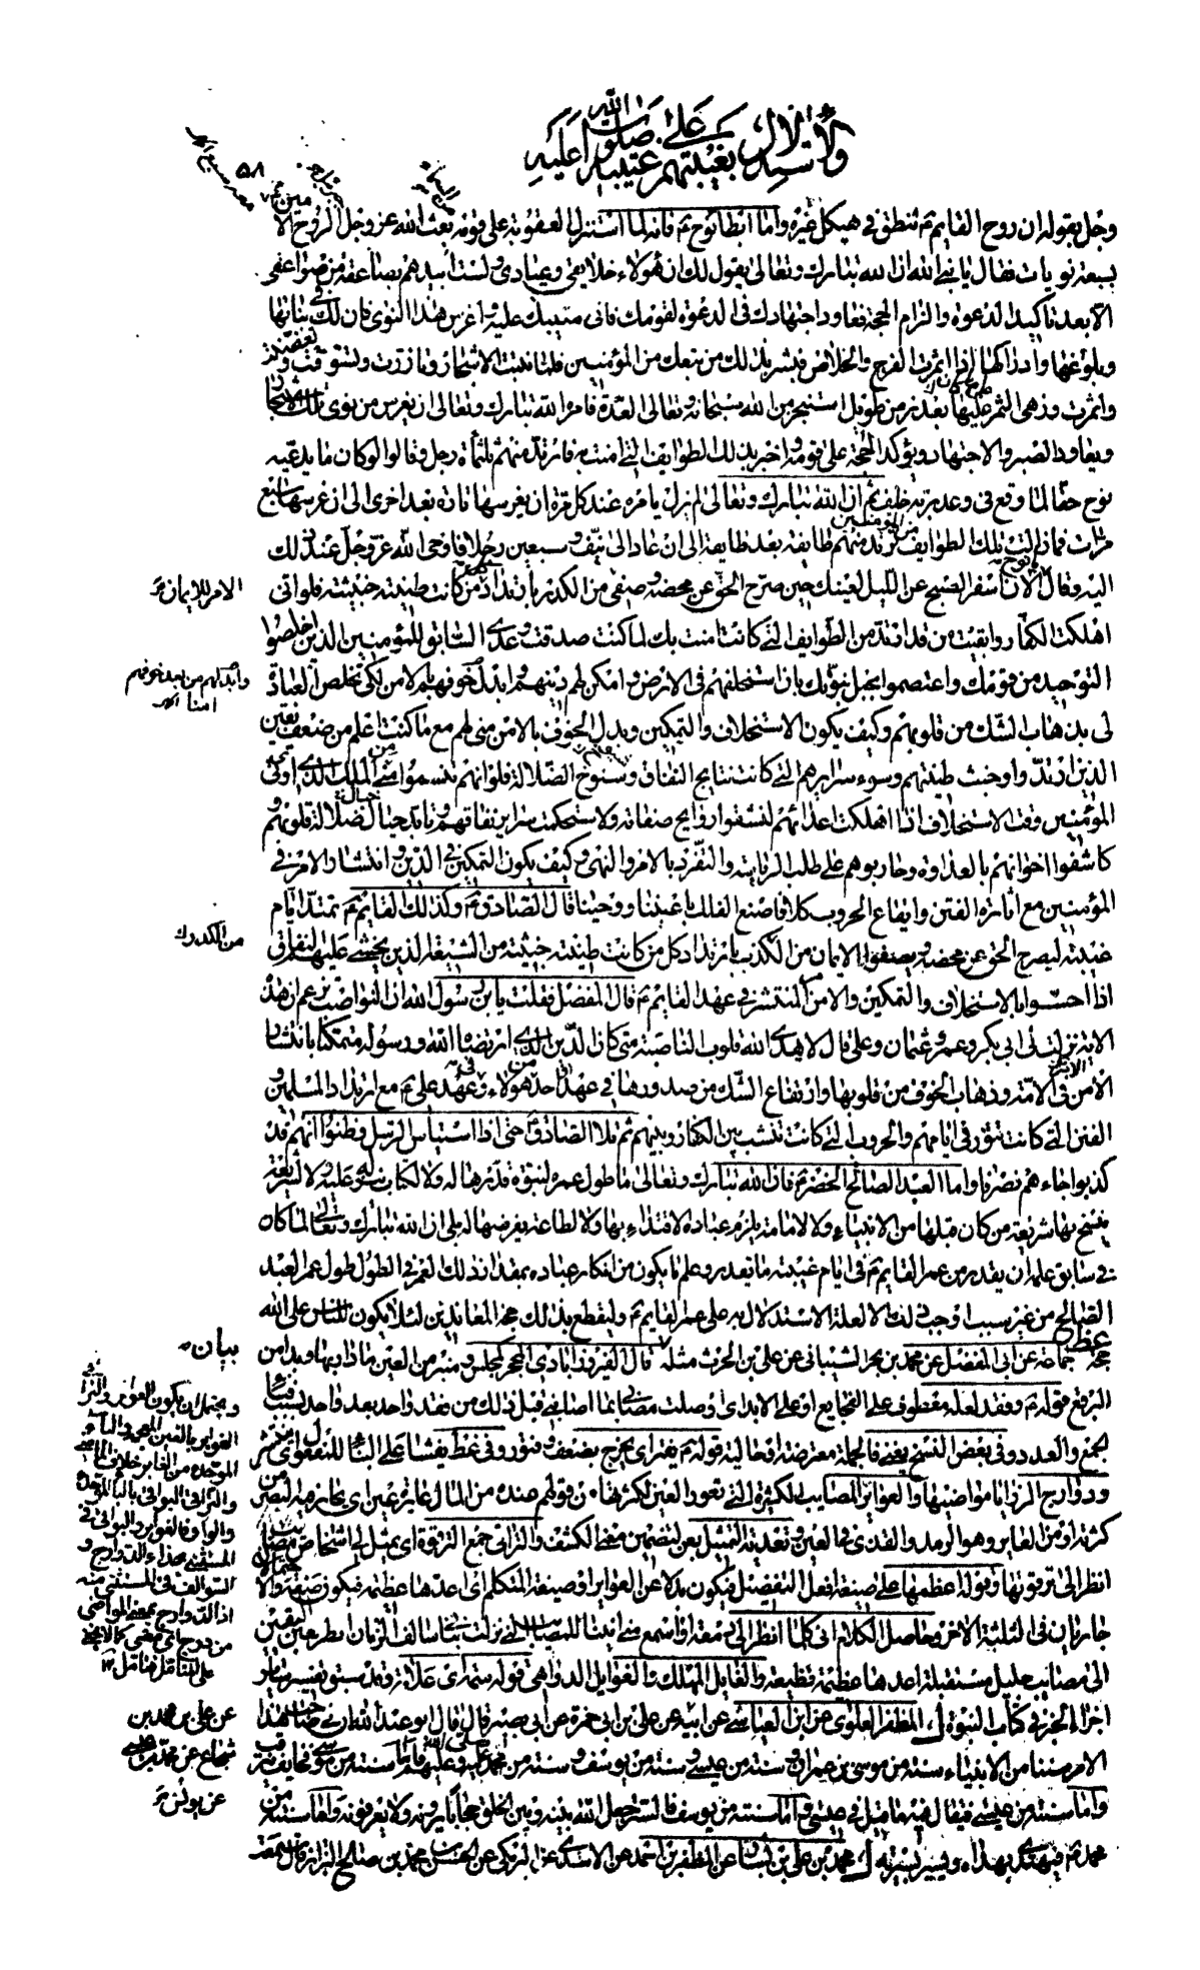 والاستدلال بغيبتهم على غيبته صلوات الله عليه
٥٨
وجل بقوله ان روح القايم ع تنطق في هيكل غيره واما ابطا نوح ع فانه لما استنزل العقوبة على قومه بعث الله عز وجل الروح الا
بسبعة نويات فقال يا نبي الله ان الله تبارك وتعالى يقول لك ان هولاء خلايقي وعبادي ولست ابيدهم بصاعقة من صواعقي
الا بعد تاكيد الدعوة والزام الحجة فعاود اجتهادك في الدعوة لقومك فاني مثيبك عليه واغرس هذا النوى فان لك في نباتها
وبلوغها وادراكها اذا اثمرت الفرج والخلاص فبشر بذلك من تبعك من المؤمنين فلما نبتت الاشجار وتازرت وتسوقت وتغصنت
واثمرت وزهى الثمر عليها بعد زمن طويل استنجز من الله سبحانه وتعالى العدة فامره الله تبارك وتعالى ان يغرس من نوى تلك الاشجار
ويعاود الصبر والاجتهاد ويؤكد الحجة على قومه فاخبر بذلك الطوايف التي امنت به فارتد منهم ثلثمأة رجل وقالوا لو كان ما يدعيه
نوح حقا لما وقع في وعد ربه خلف ثم ان الله تبارك وتعالى لم يزل يامره عند كل مرة ان يغرسها تارة بعد اخرى الى ان غرسها سبع
مرات فما زالت تلك الطوايف من المؤمنين ترتد منهم طايفة بعد طايفة الى ان عاد الى نيف وسبعين رجلا فاوحى الله عز وجل عند ذلك
اليه وقال يا نوح الان اسفر الصبح عن الليل لعينك حين صرح الحق عن محضه وصفى من الكدر بارتداد من كانت طينته خبيثة فلو اني
الامر للايمان
اهلكت الكفار وابقيت من قد ارتد من الطوايف التي كانت امنت بك لما كنت صدقت وعدي السابق للمؤمنين الذين اخلصوا
التوحيد من قومك واعتصموا بحبل نبوتك بان استخلفهم في الارض وامكن لهم دينهم وابدل خوفهم بالامن لكي تخلص العبادة
وابدلهم من بعد خوفهم امنا
لي بذهاب الشك من قلوبهم وكيف يكون الاستخلاف والتمكين وبدل الخوف بالامن مني لهم مع ما كنت اعلم من ضعف يقين
الذين ارتدوا وخبث طينتهم وسوء سرايرهم التي كانت نتايج النفاق وسنوح الضلالة فلو انهم تنسموا مني من الملك الذي اوتي
المؤمنين وقت الاستخلاف اذا اهلكت اعدائهم لنشقوا روايح صفاته ولاستحكمت سراير نفاقهم وتابد حبال ضلالة قلوبهم و
كاشفوا اخوانهم بالعداوة وحاربوهم على طلب الرياسة والتفرد بالامر والنهي وكيف يكون التمكين في الدين وانتشار الامر في
المؤمنين مع اثارة الفتن وايقاع الحروب كلا فاصنع الفلك باعيننا ووحينا قال الصادق ع وكذلك القايم ع تمتد ايام
غيبته ليصرح الحق عن محضه ويصفوا الايمان من الكذب بارتداد كل من كانت طينته خبيثة من الشيعة الذين يخشى عليهم النفاق
من الكدر
اذا احسوا بالاستخلاف والتمكين والامن المنتشر في عهد القايم ع قال المفضل فقلت يا بن رسول الله ان النواصب تزعم ان هذه
الاية نزلت في ابي بكر وعمر وعثمان وعلي قال لا يهدي الله قلوب الناصبة متى كان الدين الذي ارتضاه الله ورسوله متمكنا بانتشار
الامن في الامة وذهاب الخوف من قلوبها وارتفاع الشك من صدورها في عهد احد من هولاء وفي عهد علي ع مع ارتداد المسلمين و
الفتن التي كانت تثور في ايامهم والحروب التي كانت تنشب بين الكفار وبينهم ثم تلا الصادق ع حتى اذا استياس الرسل وظنوا انهم قد
كذبوا جاءهم نصرنا واما العبد الصالح الخضر ع فان الله تبارك وتعالى ما طول عمره لنبوة قدرها له ولا لكتاب ينزله عليه ولا لشريعة
ينسخ بها شريعة من كان قبلها من الانبياء ولا لامامة يلزم عباده الاقتداء بها ولا لطاعة يفرضها له بلى ان الله تبارك وتعالى لما كان
في سابق علمه ان يقدر من عمر القايم ع في ايام غيبته ما يقدر وعلم ما يكون من انكار عباده بمقدار ذلك العمر في الطول طول عمر العبد
الصالح من غير سبب اوجب ذلك الا لعلة الاستدلال به على عمر القايم ع وليقطع بذلك حجة المعاندين لئلا يكون للناس على الله
حجة غط جماعة عن ابي المفضل عن محمد بن بحر الشيباني عن علي بن الحرث مثله قال الفيروزابادي المحجر كمجلس ومنبر من العين ما دار بها وبدا من
بيان
البرقع قوله ع وفقد لعله معطوف على الفجايع او على الابد اي وصلت مصابي بما اصابني قبل ذلك من فقد واحد بعد واحد بسبب فناء
الجمع والعدد وفي بعض النسخ يفني فالجملة معترضة او حالية قوله ع يفتر اي يخرج بضعف وفتور وفي غط يفشا على البناء للمفعول اي ينتشر
ودوارج الرزايا مواضيها والعواير المصايب الكثيرة التي تعور العين لكثرتها من قولهم عنده من المال عايرة عين اي يحار فيه البصر من
كثرته او من العاير وهو الرمد والقذى في العين وتعدية التمثيل بعن لتضمين معنى الكشف والتراقي جمع الترقوة اي يمثل لي اشخاص مصايب
انظر الى ترقوتها وقوله اعظمها على صيغة افعل التفضيل فيكون بدلا عن العواير او صيغة المتكلم اي اعدها عظيمة فيكون صفة والاحتمالان
جاريان في الثلثة الاخر وحاصل الكلام اني كلما انظر الى دمعة او اسمع مني انينا للمصايب التي نزلت بي في سالف الزمان انظر بعين اليقين
الى مصايب جليلة مستقبلة اعدها عظيمة فظيعة والغايل المهلك والغوايل الدواهي قوله سترى علاية وقد سبق تفسير ساير
اجزاء الخبر في كتاب النبوة ك المظفر العلوي عن ابن العياشي عن ابيه عن علي بن ابي حمزة عن ابي بصير قال قال ابو عبد الله ان في صاحب هذا
عن علي بن محمد بن شجاع عن محمد بن عيسى عن يونس
الامر سننا من الانبياء سنة من موسى بن عمران وسنة من عيسى وسنة من يوسف وسنة من محمد صلى الله عليه وعليهم فاما سنة من موسى فخايف يترقب
واما سنة من عيسى فيقال فيه ما قيل في عيسى واما سنة من يوسف فالستر جعل الله بينه وبين الخلق حجابا يرونه ولا يعرفونه واما سنة من
محمد ع فيهتدي بهداه ويسير بسيرته ك محمد بن علي بن بشار عن المظفر بن احمد عن الاسدي عن البرمكي عن الحسن بن محمد بن صالح البزاز قال سمعت